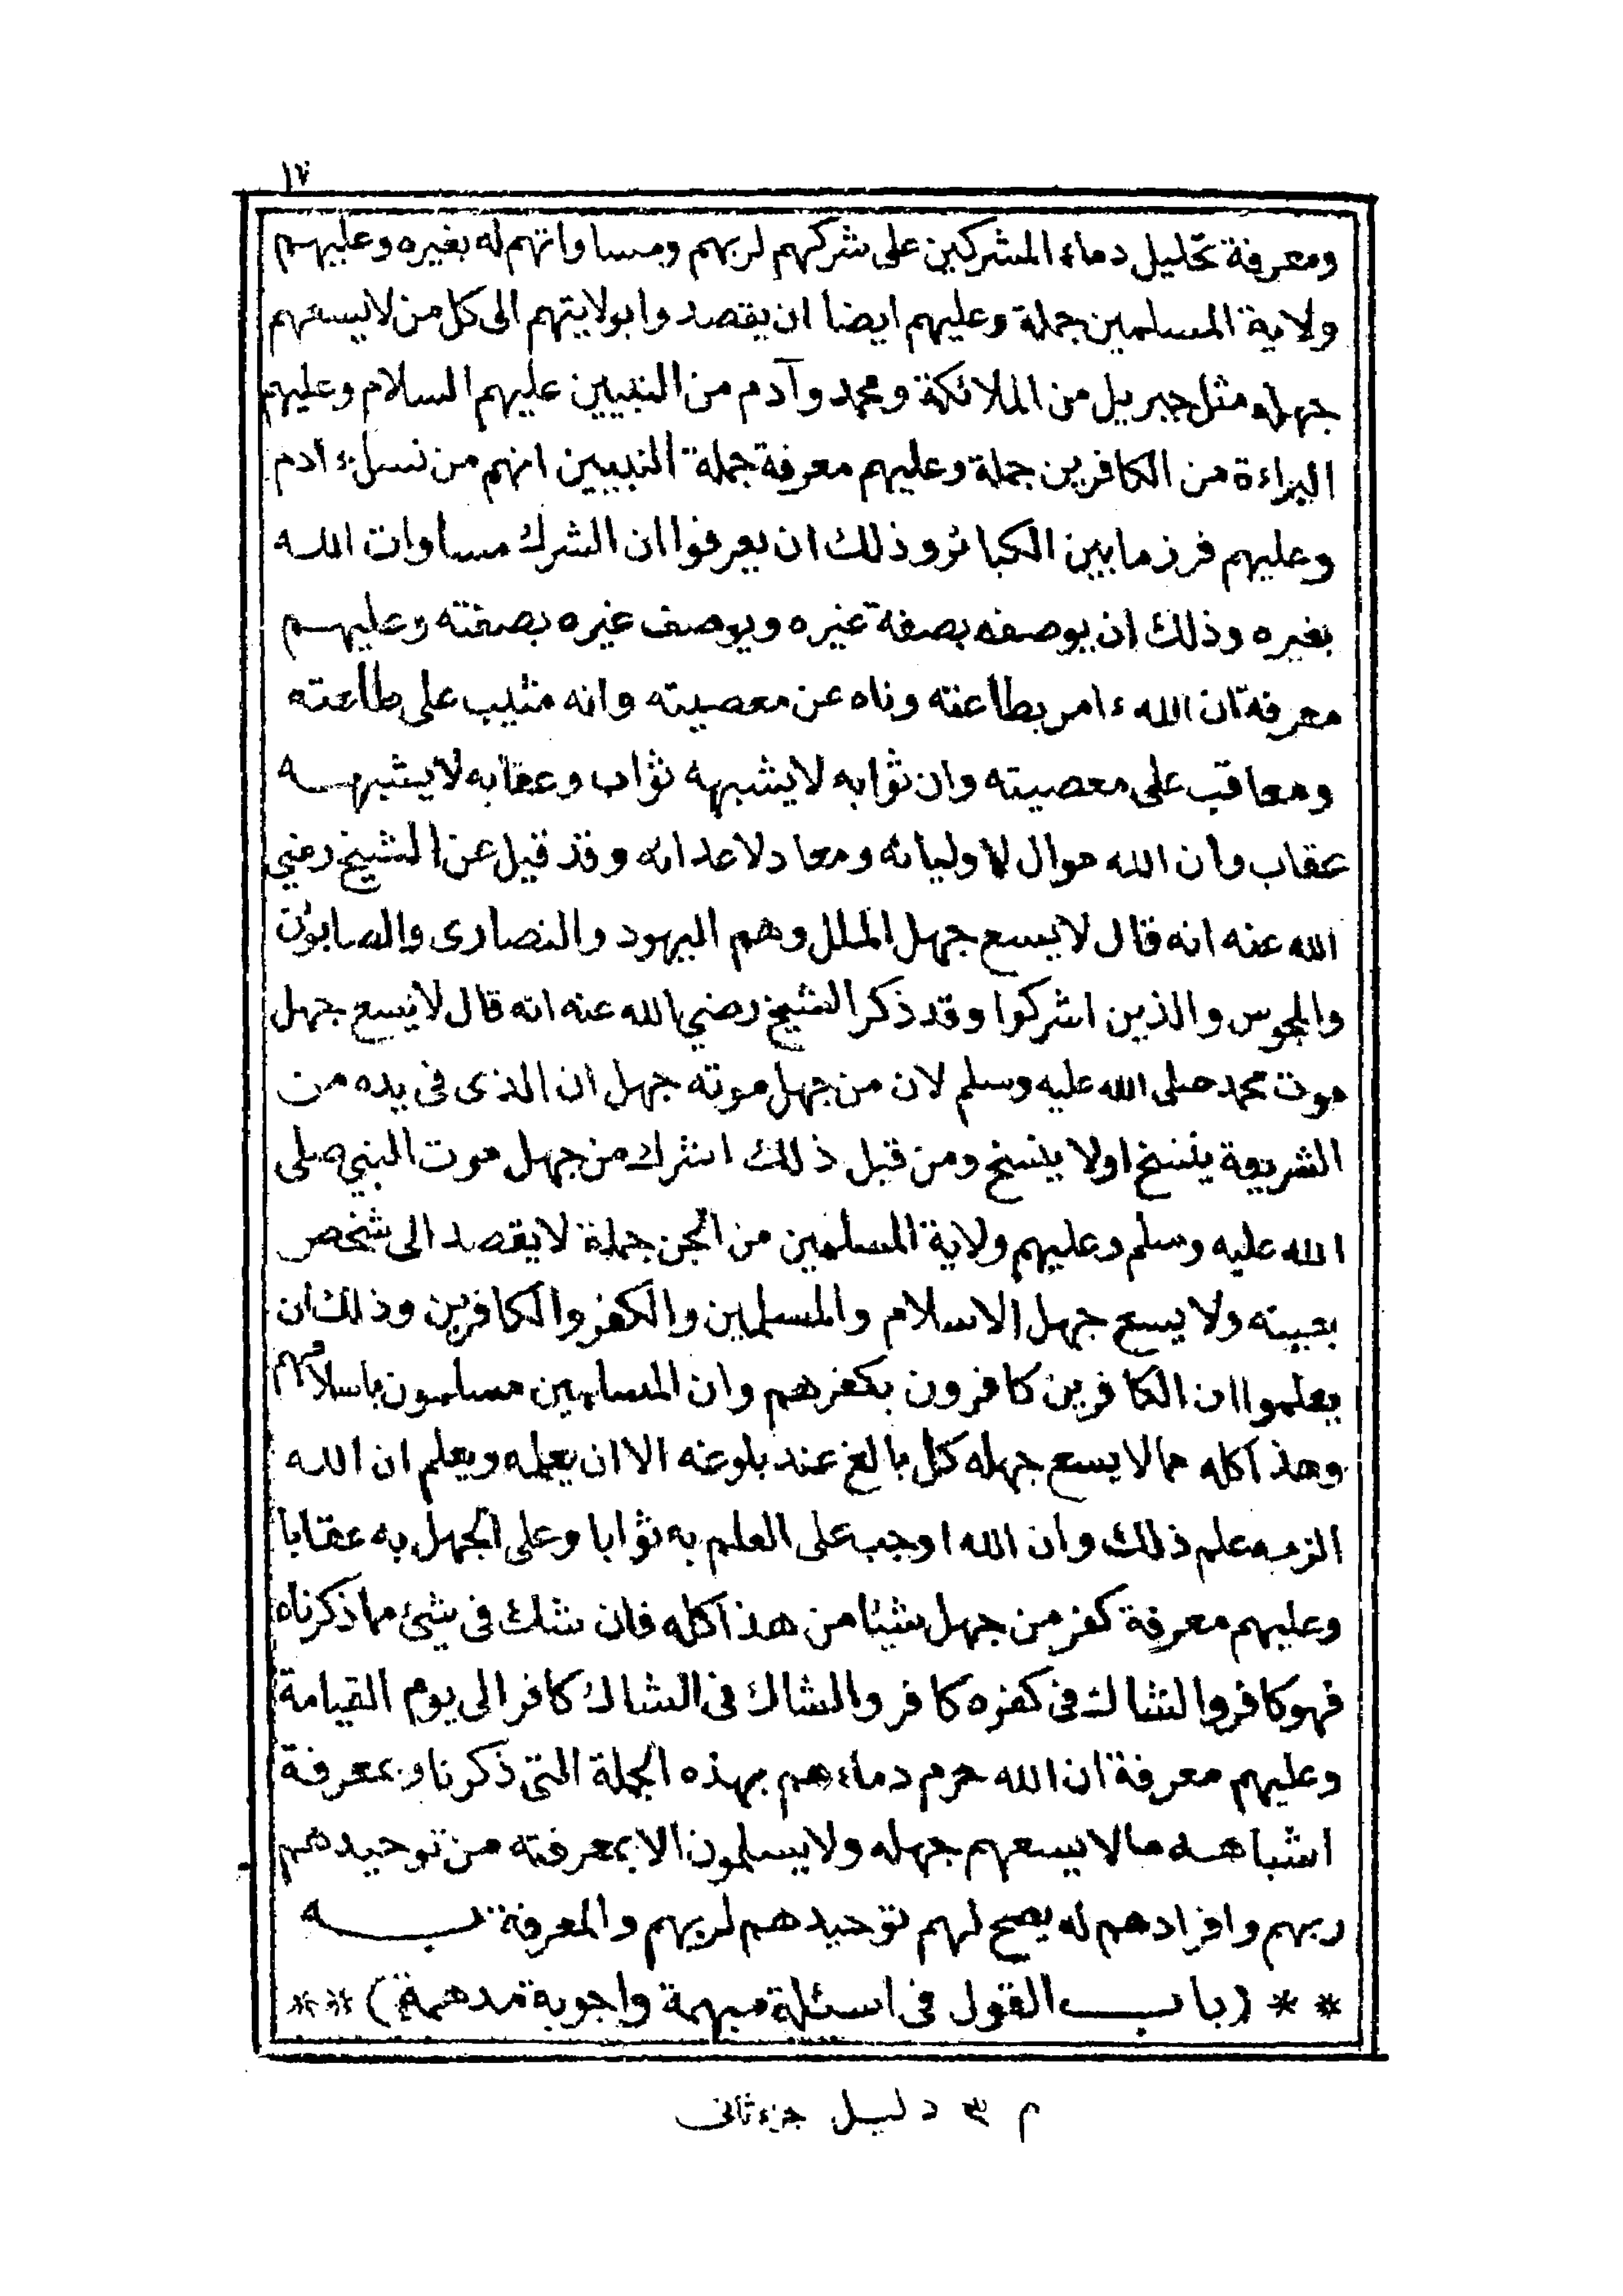 ١٧
ومعرفة تحليل دماء المشركين على شركهم لربهم ومساواتهم له بغيره وعليهم
ولاية المسلمين جملة وعليهم ايضا ان يقصدوا بولايتهم الى كل من لا يسعهم
جهله مثل جبريل من الملائكة ومحمد وآدم من النبيين عليهم السلام وعليهم
البراءة من الكافرين جملة وعليهم معرفة جملة النبيين انهم من نسل ءادم
وعليهم فرز ما بين الكبائر وذلك ان يعرفوا ان الشرك مساوات الله
بغيره وذلك ان يوصفه بصفة غيره ويوصف غيره بصفته وعليهم
معرفة ان الله ءامر بطاعته وناه عن معصيته وانه مثيب على طاعته
ومعاقب على معصيته وان ثوابه لا يشبهه ثواب وعقابه لا يشبهه
عقاب وان الله موال لاوليائه ومعاد لاعدائه وقد قيل عن الشيخ رضي
الله عنه انه قال لا يسع جهل الملل وهم اليهود والنصارى والصابؤن
والمجوس والذين اشركوا وقد ذكر الشيخ رضي الله عنه انه قال لا يسع جهل
موت محمد صلى الله عليه وسلم لان من جهل موته جهل ان الذى فى يده من
الشريعة ينسخ او لا ينسخ ومن قبل ذلك اشرك من جهل موت النبي صلى
الله عليه وسلم وعليهم ولاية المسلمين من الجن جملة لا يقصد الى شخص
بعينه ولا يسع جهل الاسلام والمسلمين والكفر والكافرين وذلك ان
يعلموا ان الكافرين كافرون بكفرهم وان المسلمين مسلمون باسلامهم
وهذا كله مما لا يسع جهله كل بالغ عند بلوغه الا ان يعلمه ويعلم ان الله
الزمه علم ذلك وان الله اوجب على العلم به ثوابا وعلى الجهل به عقابا
وعليهم معرفة كفر من جهل شيئا من هذا كله فان شك فى شئ مما ذكرناه
فهو كافر والشاك فى كفره كافر والشاك فى الشاك كافر الى يوم القيامة
وعليهم معرفة ان الله حرم دماءهم بهذه الجملة التى ذكرنا وبمعرفة
اشباهه مما لا يسعهم جهله ولا يسلمون الا بمعرفته من توحيدهم
ربهم وافرادهم له يصح لهم توحيدهم لربهم والمعرفة به
** (باب القول فى اسئلة مبهمة واجوبة مدهمة) **
م ٣ دليل جزء ثانى